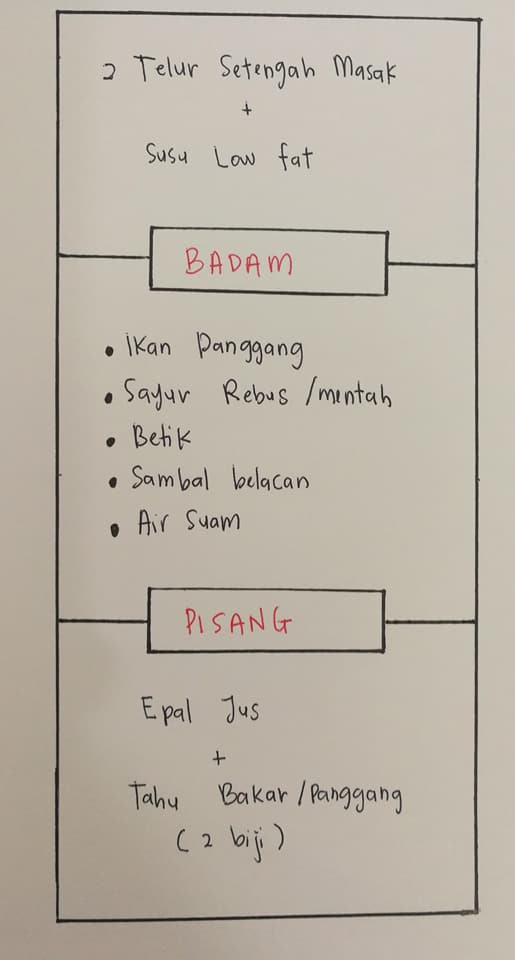 2 Telur Setengah Masak
+
Susu Low fat
BADAM
• Ikan Panggang
• Sayur Rebus /mentah
• Betik
• Sambal belacan
• Air Suam
PISANG
Epal Jus
+
Tahu Bakar /Panggang
( 2 biji )